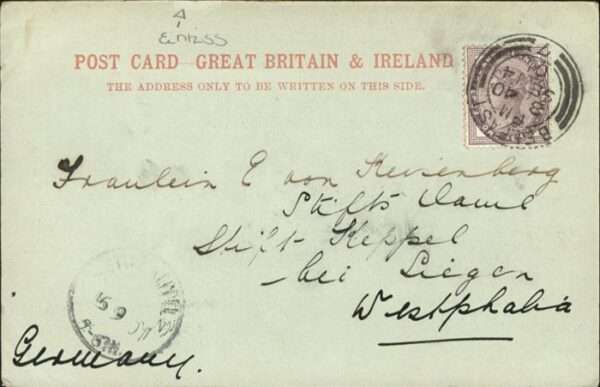 POST CARD GREAT BRITAIN & IRELAND
THE ADDRESS ONLY TO BE WRITTEN ON THIS SIDE.
BELFAST
Fraulein E von
Stifts Dame
Stift-Keppel
-bei Siegen
Westphalia
Germany.